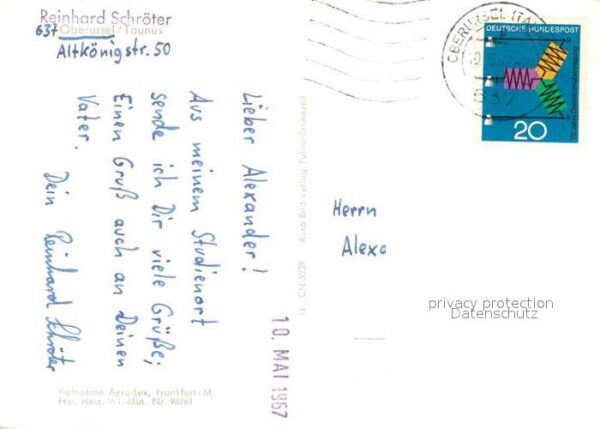 Reinhard Schröter
637 Oberursel/Taunus
Altkönigstr. 50
Lieber Alexander!
Aus meinem Studienort
sende ich Dir viele Grüße;
Einen Gruß auch an Deinen
Vater.
Dein Reinhard Schröter
Aufnahme Aero-Lux, Frankfurt/M.
Frei. Hess. Wi.-Min. Nr. 98/61
10. MAI 1967
OBERURSEL (TAUNUS)
637
DEUTSCHE BUNDESPOST
20
Herrn
Alexa
privacy protection
Datenschutz